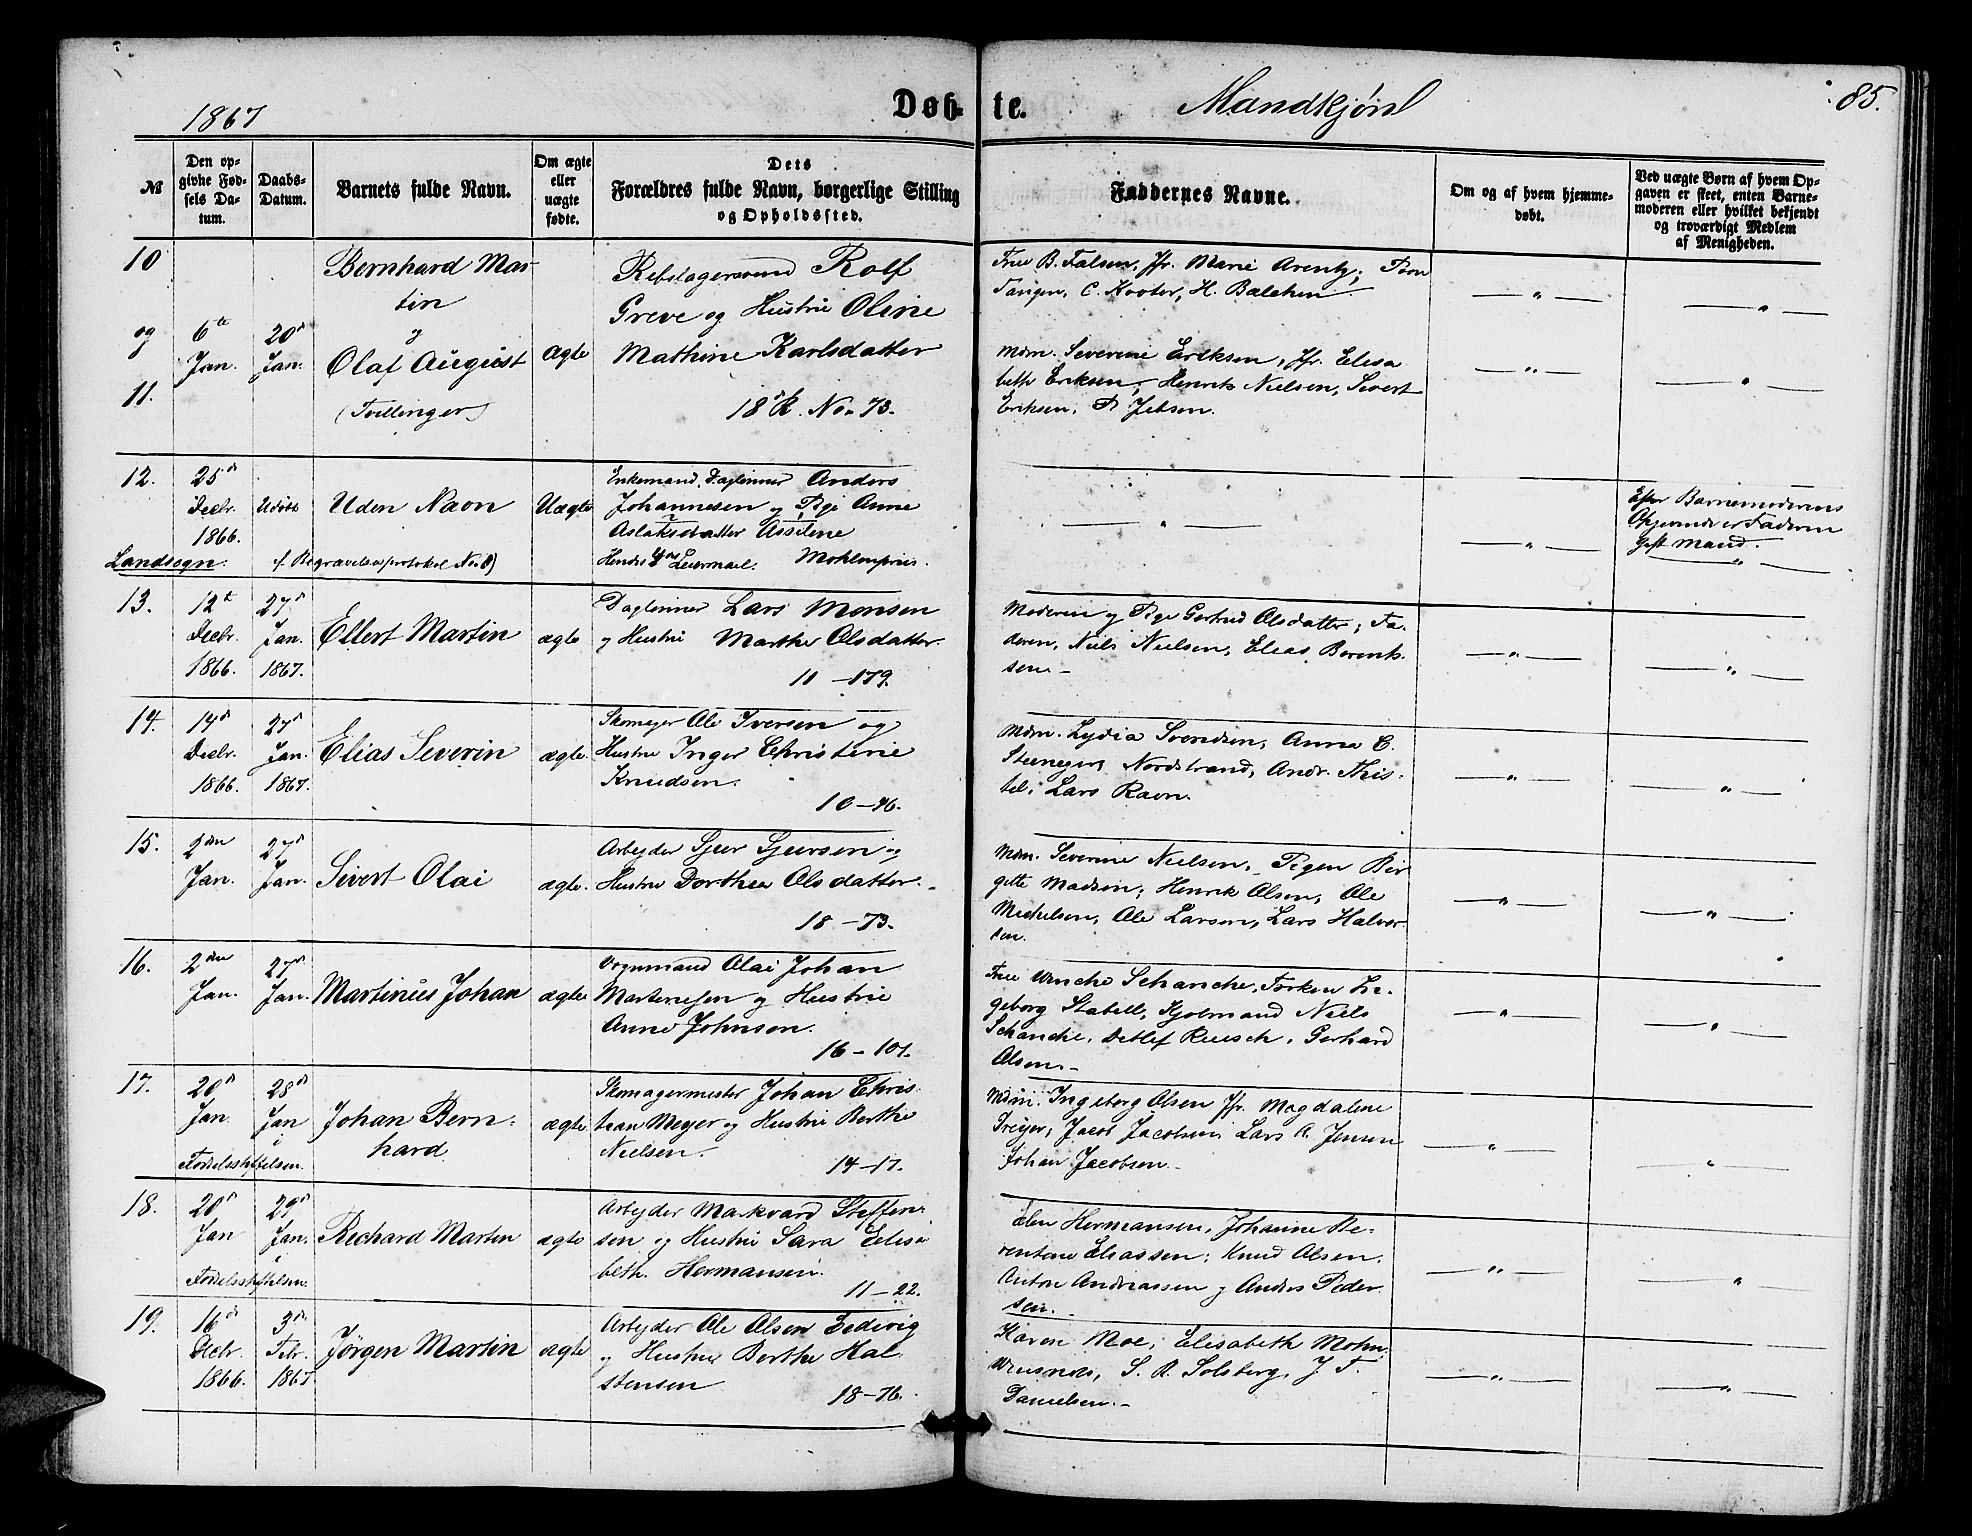 1867
Døbte.
Mandkjøn
85.
№
Den opgivne Fødsels Datum.
Daabs-Datum.
Barnets fulde Navn.
Om ægte eller uægte fødte.
Dets Forældres fulde Navn, borgerlige Stilling og Opholdssted.
Faddernes Navne.
Om og af hvem hjemmedøbt.
Ved uægte Børn af hvem Opgaven er skeet, enten Barnemoderen eller hvilket bekjendt og troværdigt Medlem af Menigheden.
10
og
11.
6te
Jan.
20d
Jan.
Bernhard Mar-
tin
og
Olaf August
(Tvillinger)
ægte
Rebslagersvend Rolf
Greve og Hustrue Oline
Mathine Karlsdatter
18d R. No. 73.
Frue B. Falsen, Jfr. Marie Arentz;
Tangen, C. Kooter, H. Balchen
Mdm. Severine Eriksen, Jfr. Elisa
beth Eriksen; Henrik Nielsen, Sivert
Eriksen, P. Jebsen.
12.
25d
Decbr.
1866.
Udøbt
Uden Navn
Uægte
Enkemand, Dagleiner Anders
Johannesen og Pige Anne
Aslaksdatter Asseline
Hendes Leiermaal. Møhlenpriis.
Efter Barnemoderens
Opgivende er Faderen
gift Mand.
Landsogn. (s. Begravelsesprotokol No. 8)
13.
12te
Decbr.
1866.
27d
Jan.
1867.
Ellert Martin
ægte
Dagleiner Lars Monsen
og Hustrue Marthe Olsdatter.
11 - 179.
Moderen og Pige Gertrud Olsdatter; Fa-
deren, Niels Nielsen, Elias Berent-
sen.
14.
14d
Decbr.
1866.
27d
Jan.
1867.
Elias Severin
ægte.
Skomager Ole Iversen og
Hustrue Inger Christine
Knudsen.
10 - 46.
Mdm. Lydia Svendsen, Anna C.
Nordstrand, Andr. This-
tel, Lars Ravn.
15.
2den
Jan.
27d
Jan.
Sivert Olai
ægte.
Arbejder Sjur Sjursen og
Hustrue Dorthea Olsdatter.
18 - 73.
Mdm. Severine Nielsen, Pigen Bir
gitte Madsen; Henrik Olsen, Ole
Michelsen, Ole Larsen, Lars Halvor
sen.
16.
2den
Jan.
27d
Jan.
Martinus Johan
ægte
Vognmand Olai Johan
Martenusen og Hustrue
Anne Johnson.
16 - 101.
Frue Wenche Schanche, Frøken In-
geborg Stabell, Kjøbmand Niels
Schanche, Detlef Reusch, Gerhard
Olsen.
17.
20d
Jan
28d
Jan
i
Fødselsstiftelsen.
Johan Bern-
hard
ægte
Skomagermester Johan Chris-
tian Meyer og Hustrue Berthe
Nielsen.
14 - 17.
Mdm. Ingeborg Olsen Jfr. Magdalene
Dreyer; Jacob Jacobsen, Lars A. Jensen
Johan Jacobsen.
18.
20d
Jan
29d
Jan.
i
Fødselsstiftelsen
Richard Martin
ægte
Arbejder Markvard Steffen-
sen og Hustrue Sara Elisa
beth Hermansen.
11 - 22.
Elen Hermansen, Johanne Be-
rentine Eliassen; Knud Olsen,
Anton Andreassen og Anders Peder
sen.
19.
16d
Decbr.
1866.
3d
Febr.
1867.
Jørgen Martin
ægte
Arbejder Ole Olsen Ledivig
og Hustrue Berthe Hal-
stensen
18 - 76.
Karen Moe, Elisabeth Mohn
S. R. Solsberg, J. F.
Danielsen.